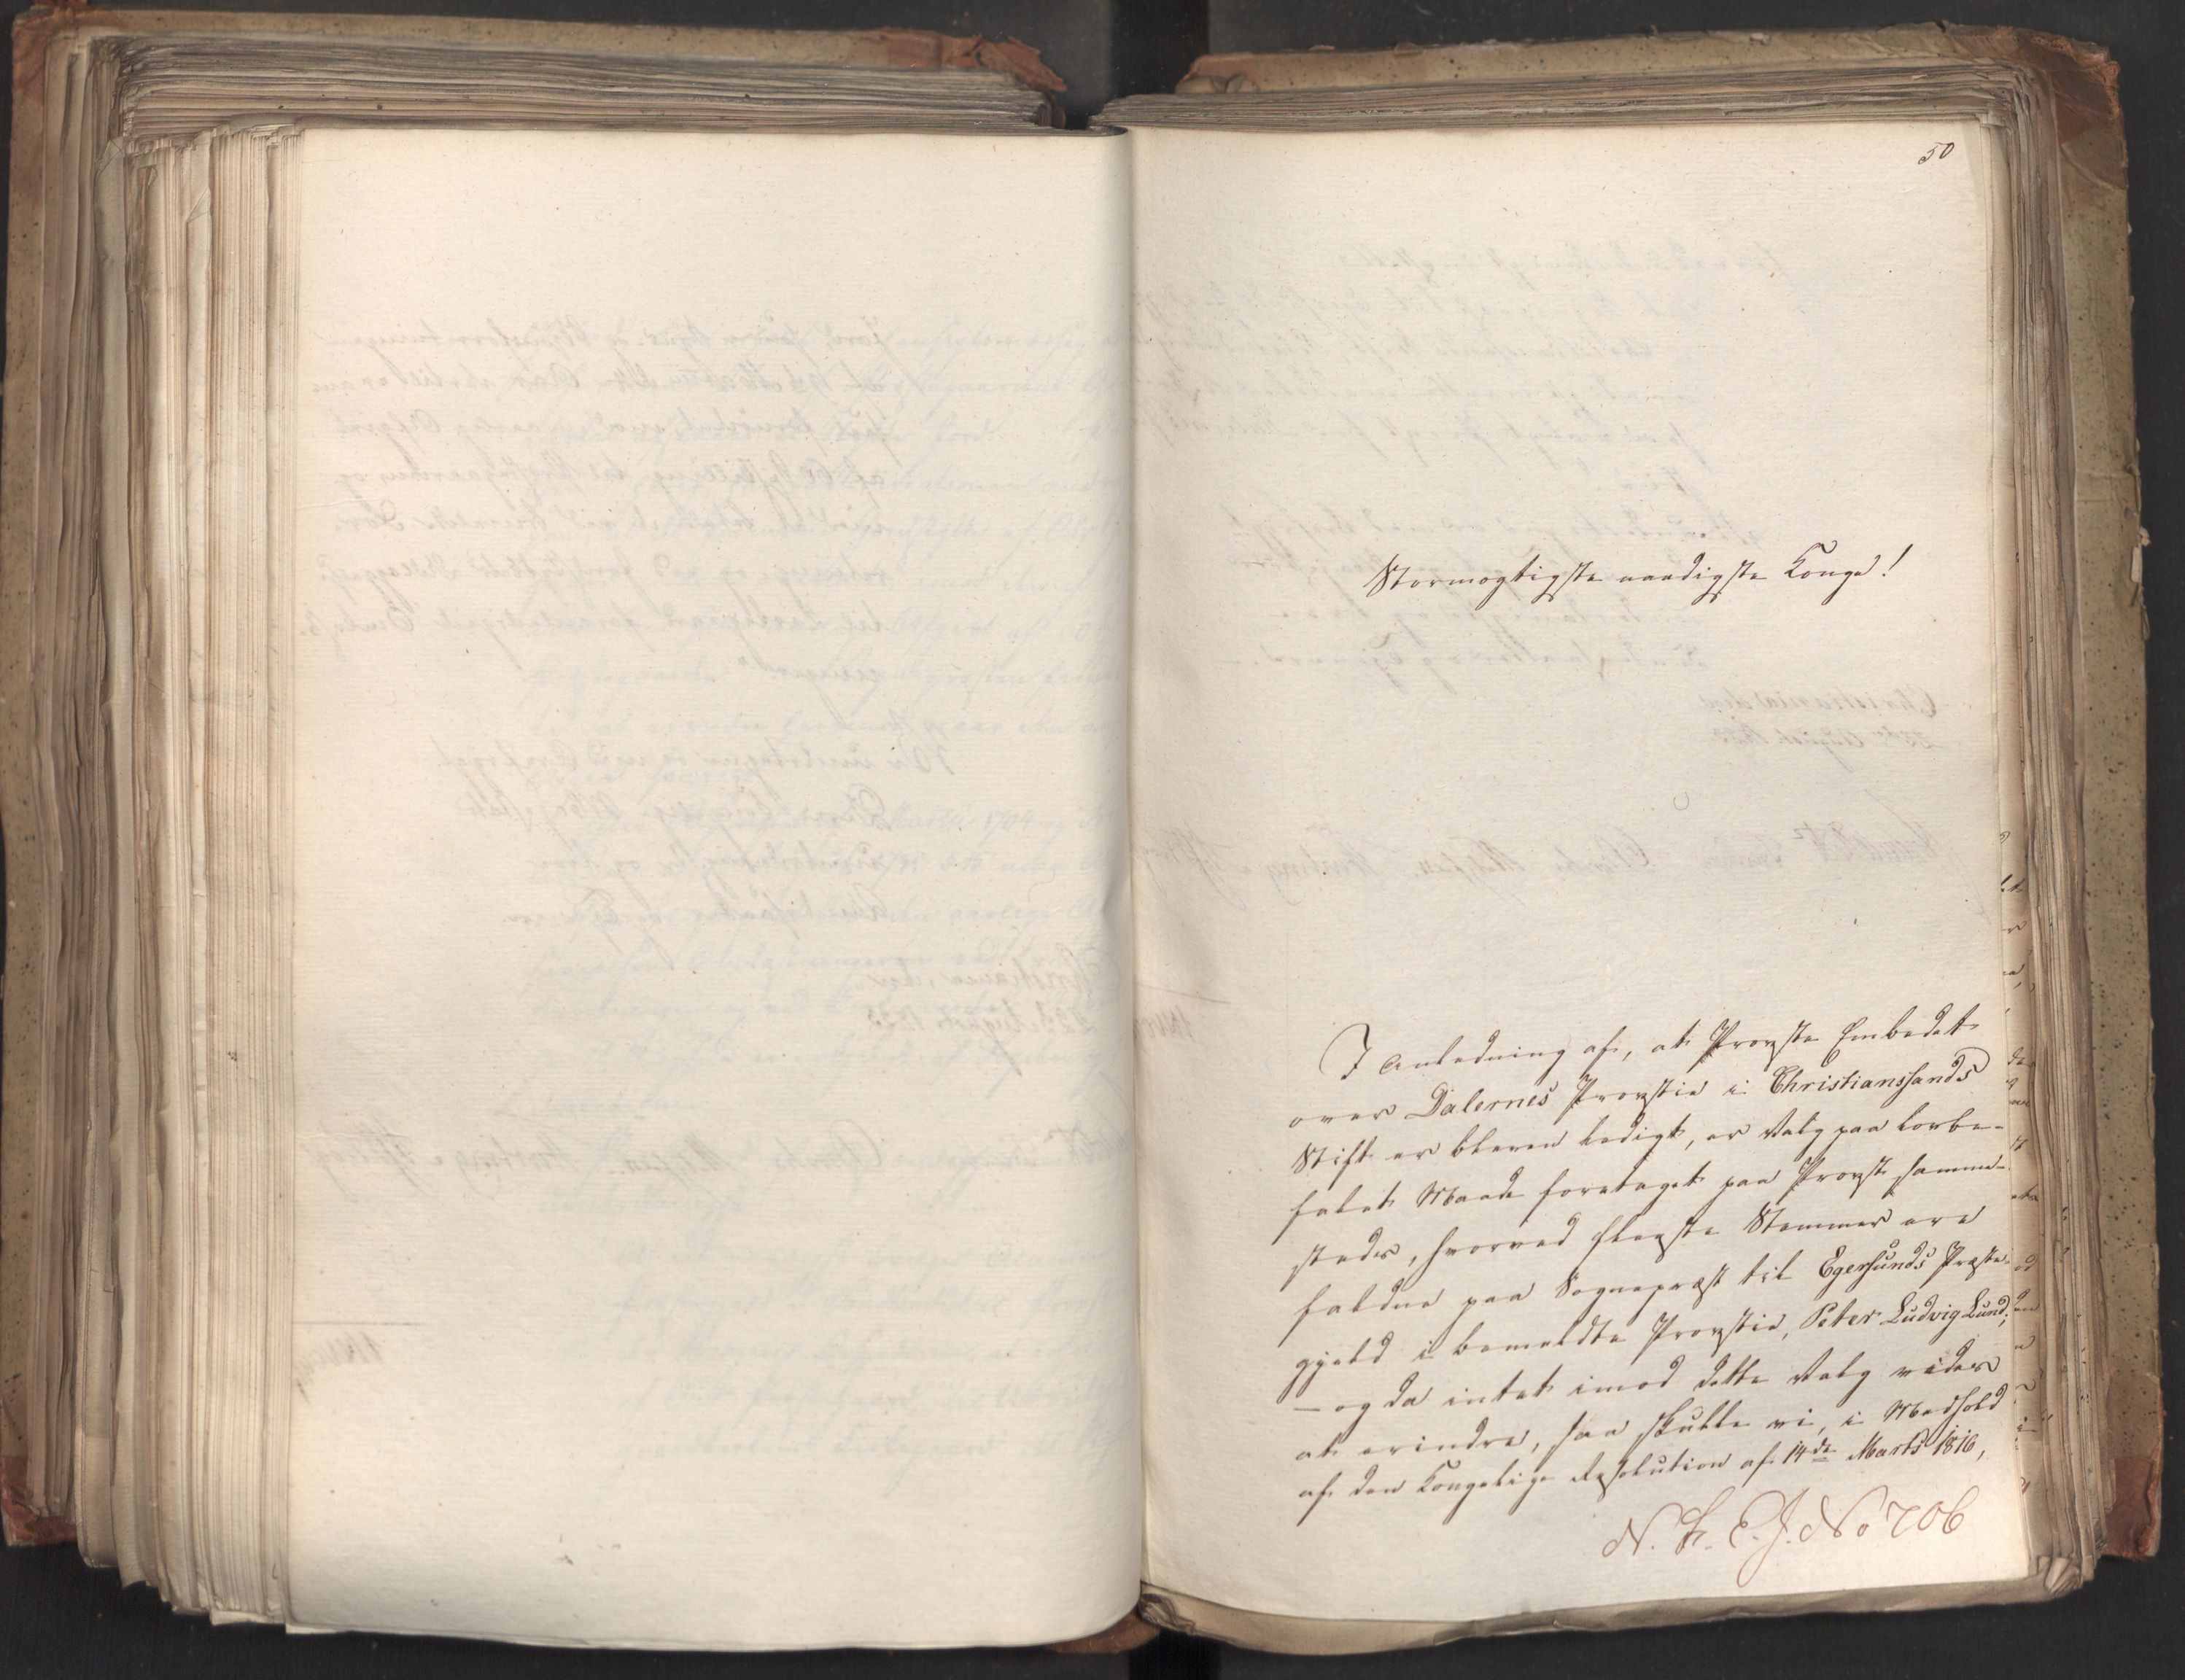 50
Stormægtigste naadigste Konge!
I Anledning af, at Provste Embedet
over Dalernes Provstie i Christianssands
Stift er bleven ledigt, er Valg paa lovbe-
falet Maade foretaget paa Provst samme-
steds, hvorved fleeste Stemmer ere
faldne paa Sognepræst til Egersunds Præste-
gjeld i bemeldte Provstie, Peter Ludvig Lund;
— og da intet imod dette Valg vides
at erindre, saa skulle vi, i Medhold
af den Kongelige Resolution af 14de Marts 1816,
N. K. E. J. No 706